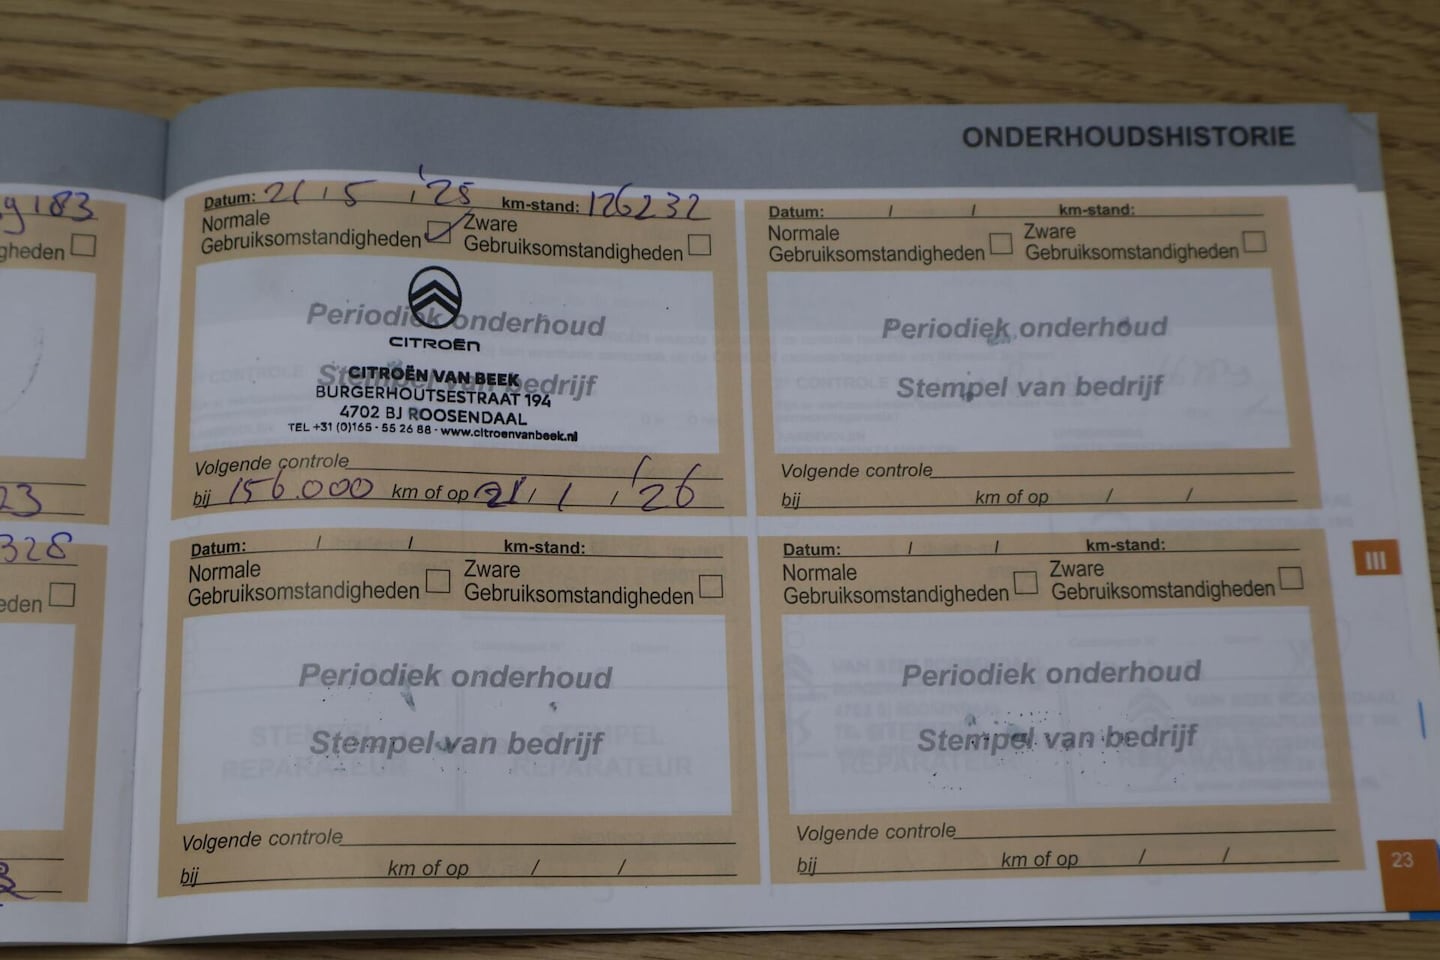 ONDERHOUDSHISTORIE
183
gheden
23
328
eden
Datum: 21 / 5 / '25 km-stand: 126232
Normale Zware
Gebruiksomstandigheden Gebruiksomstandigheden
Periodiek onderhoud
CITROËN
Stempel van bedrijf
CITROËN VAN BEEK
BURGERHOUTSESTRAAT 194
4702 BJ ROOSENDAAL
TEL +31 (0)165 - 55 26 88 - www.citroenvanbeek.nl
Volgende controle
bij 156.000 km of op 21 / 1 / '26
Datum: / / km-stand:
Normale Zware
Gebruiksomstandigheden Gebruiksomstandigheden
Periodiek onderhoud
Stempel van bedrijf
Volgende controle
bij km of op / /
Datum: / / km-stand:
Normale Zware
Gebruiksomstandigheden Gebruiksomstandigheden
Periodiek onderhoud
Stempel van bedrijf
Volgende controle
bij km of op / /
Datum: / / km-stand:
Normale Zware
Gebruiksomstandigheden Gebruiksomstandigheden
Periodiek onderhoud
Stempel van bedrijf
Volgende controle
bij km of op / /
III
23